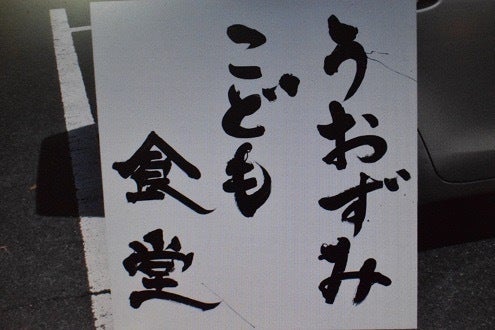 うおずみ
こども
食堂